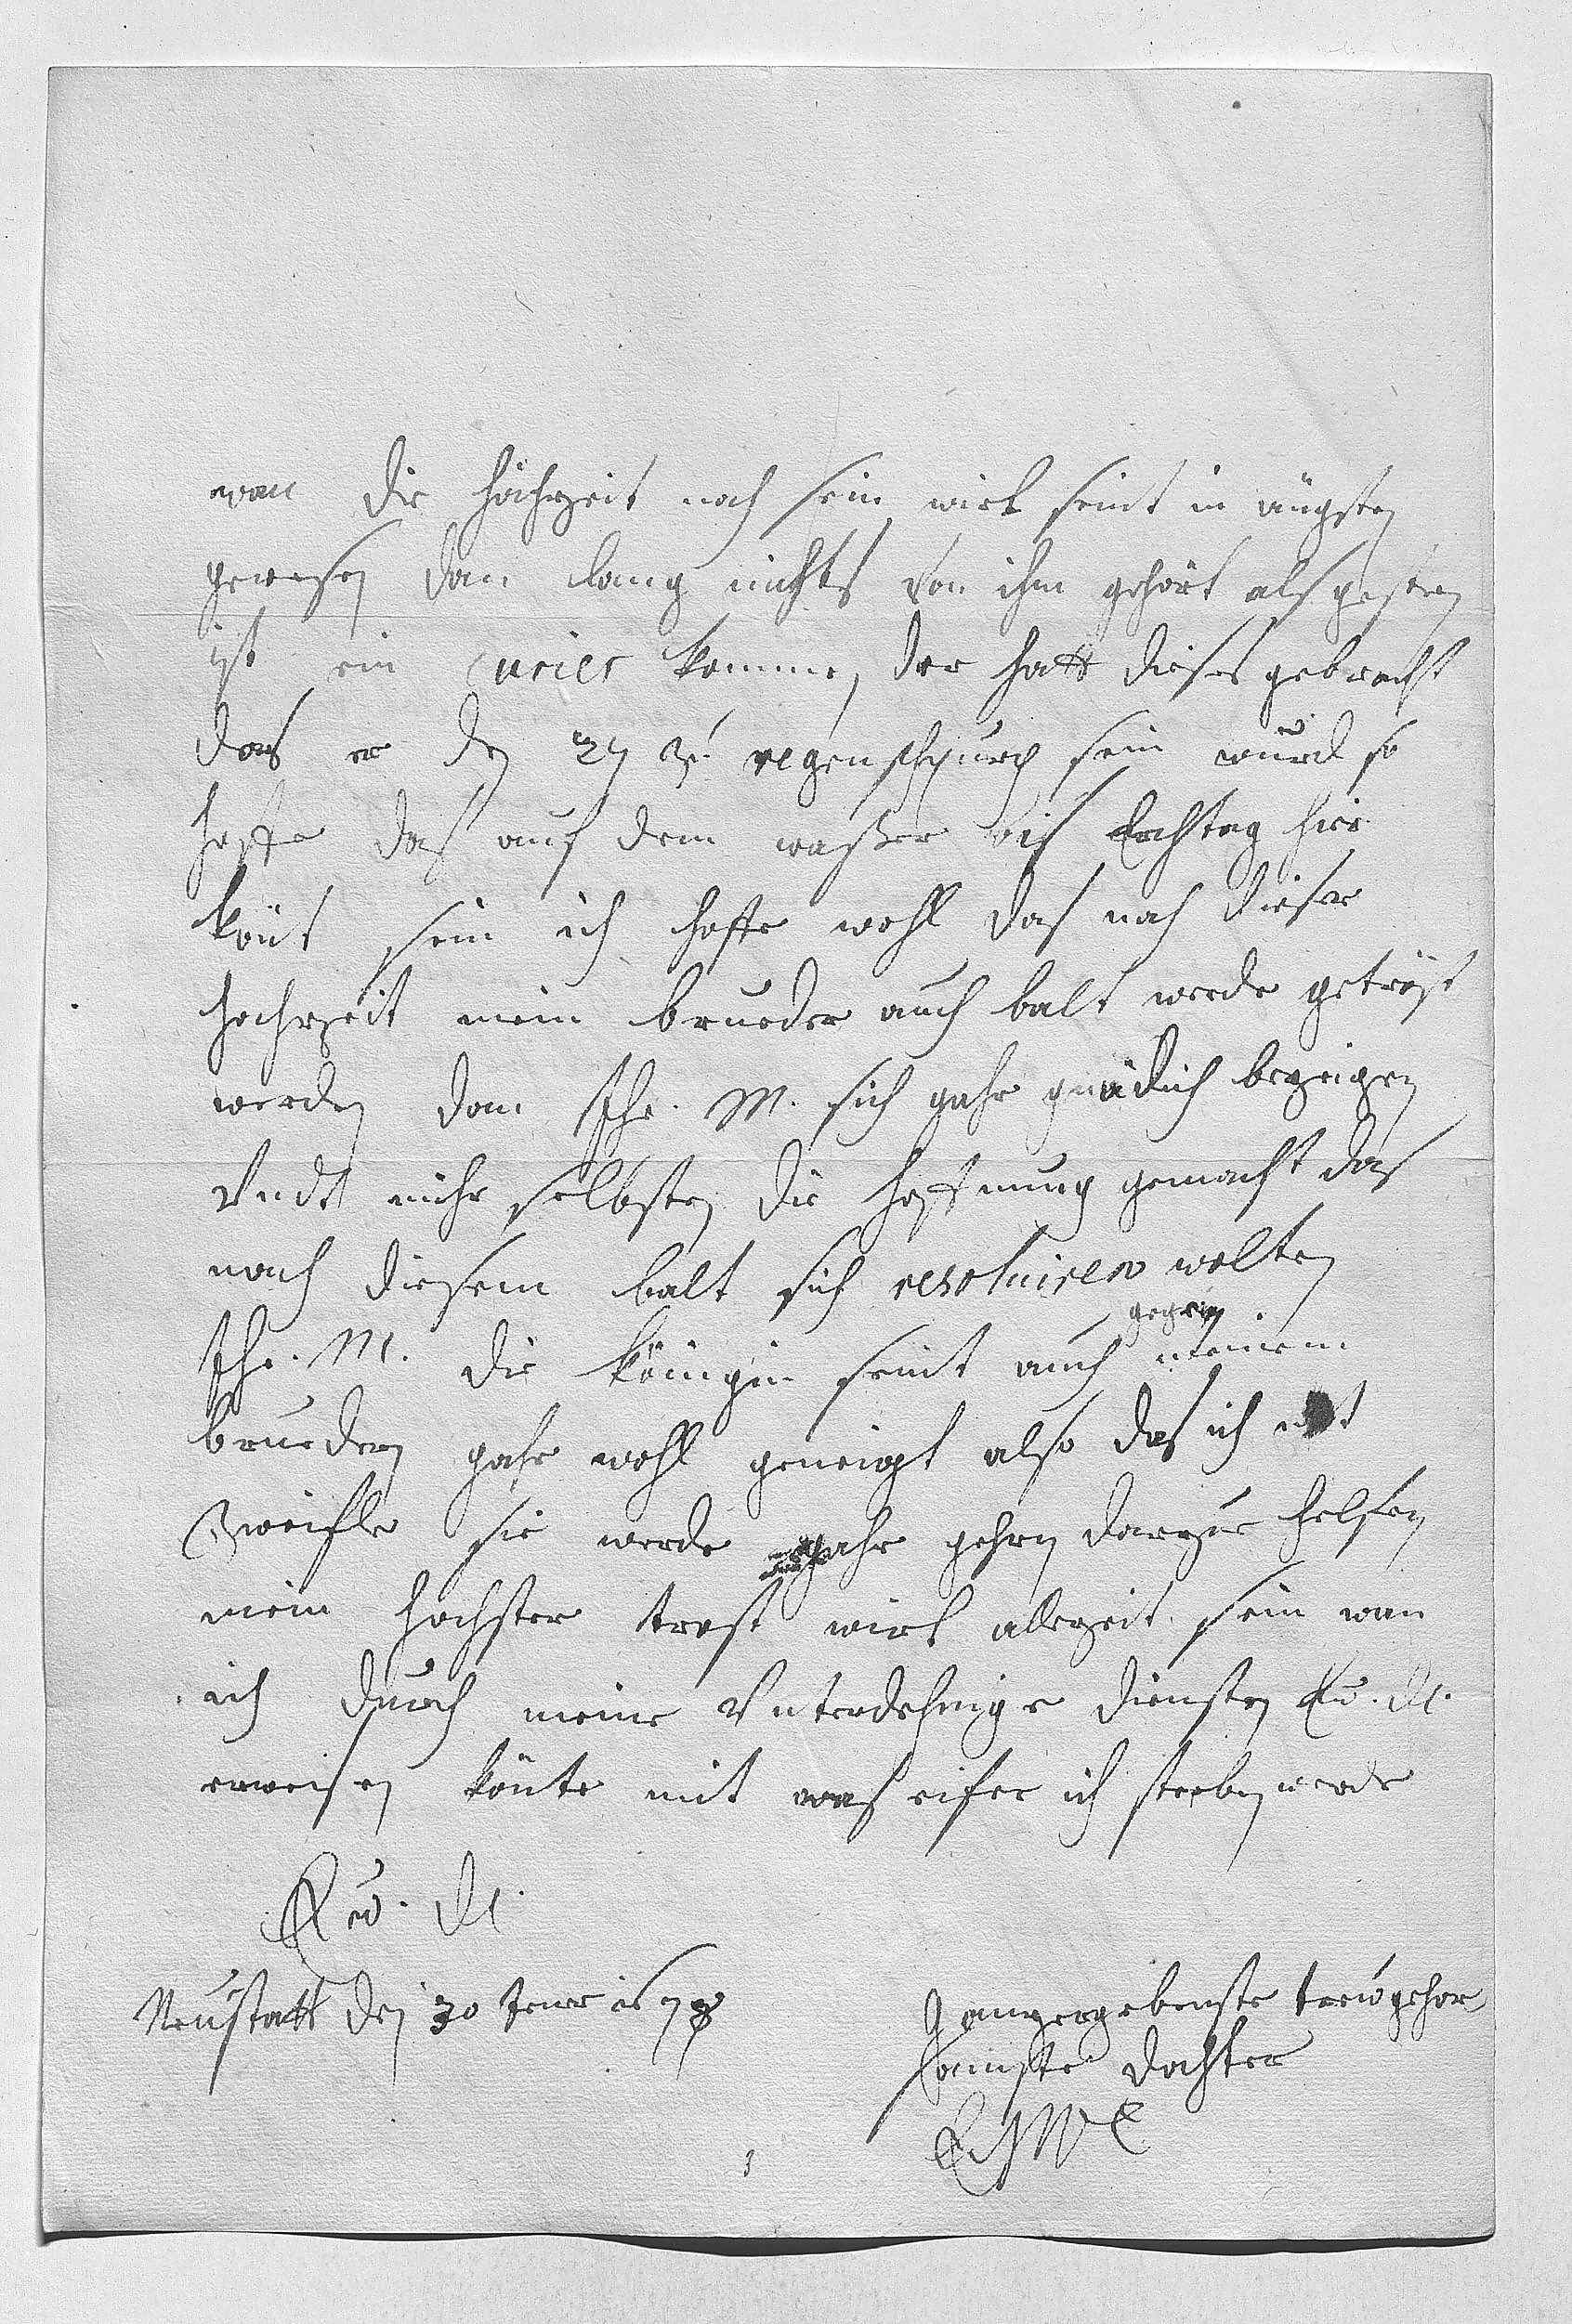 wan die hochzeit noch sein wirt seint in ängsten
gewesen dan lang nichts von ihm gehört als gestern
ist ein curier komme, der hatt dieses gebracht
das er den 27 zu regenspurg sein würd so
hoffe das auf dem waßer bis Erchtag hier
könt sein ich hoffe wohl das nach dieser
hochzeit mein brueder auch balt werde getröst
werden dan Ihr. M. sich gahr gnädich bezeigen
Vndt mihr selbsten die hoffnung gemacht das
nach diesem balt sich resoluiren wolten
Ihr. M. die königin seint auch gegen meinem
bruedern gahr wohl geneigt also das ich nit
Zweifle sie werde gahr gehrn darzue helfen
mein hochster trost wirt alezeit sein wan
ich durch meine Vnterdehnige diensten Ew. Dl.
erweisen könte mit was eifer ich sterben werde
Ew. Dl.
Neustatt den 30 Jener 1678
ganzergebenste treugehor
samste dochter